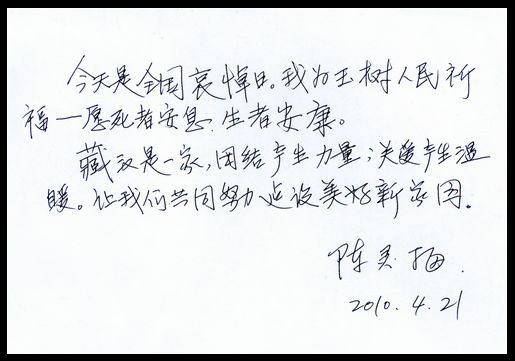 今天是全国哀悼日。我为玉树人民祈
福—愿死者安息.生者安康。
藏汉是一家,团结产生力量;关爱产生温
暖。让我们共同努力建设美好新家园.
陈
2010.4.21